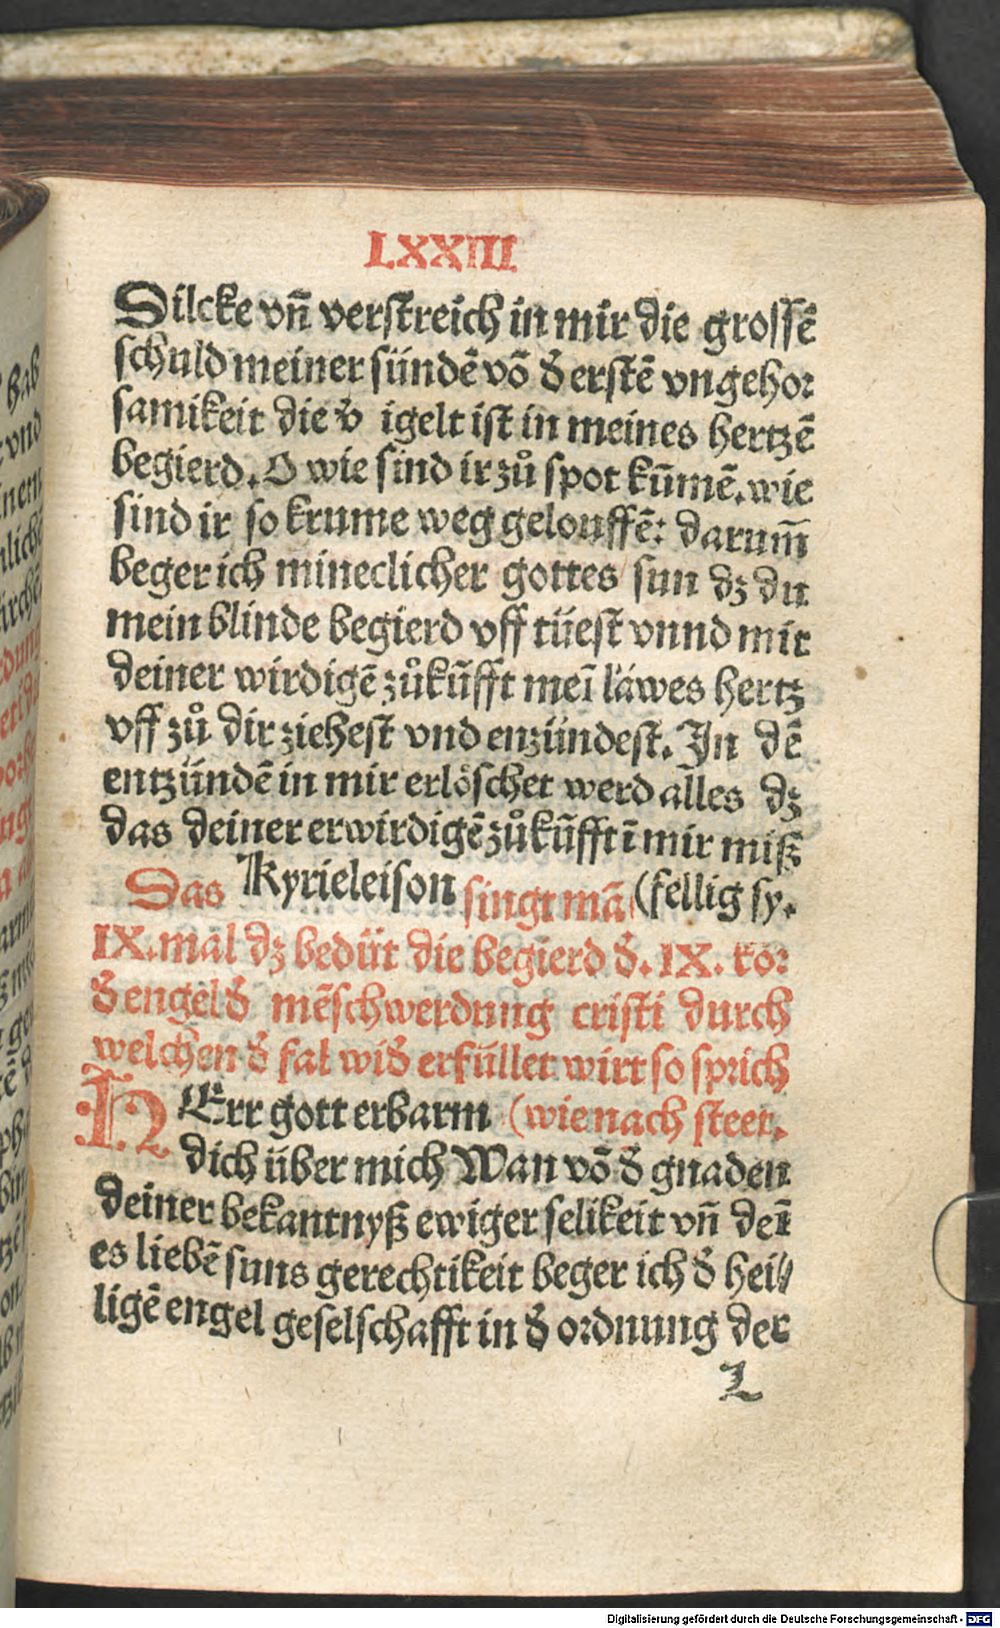 LXXIIII
Silcke vñ verstreich in mir die grossē
schuld meiner sündē vō đ erstē vngehor
samikeit die v̄ igelt ist in meines hertzē
begierd. O wie sind ir zů spot kūmē. wie
sind ir so krume weg gelouffē: darum̄
beger ich mineclicher gottes sun dz du
mein blinde begierd vff tüest vnnd mit
deiner wirdigē zůkūfft meī läwes hertz
vff zů dir ziehest vnd enzündest. In dē
entzündē in mir erlöschet werd alles dz
das deiner erwirdigē zůkūfft ī mir miß
Das Kyrieleison singt mā (fellig sy.
IX. mal dz bedüt die begierd đ. IX. kor
đ engel đ mēschwerdung cristi durch
welchen đ fal wiđ erfüllet wirt so sprich
HErr gott erbarm (wie nach steet.
dich über mich Wan vō đ gnaden
deiner bekantnyß ewiger selikeit vñ deī
es liebē suns gerechtikeit beger ich đ hei//
ligē engel geselschafft in đ ordnung der
L
Digitalisierung gefördert durch die Deutsche Forschungsgemeinschaft - DFG